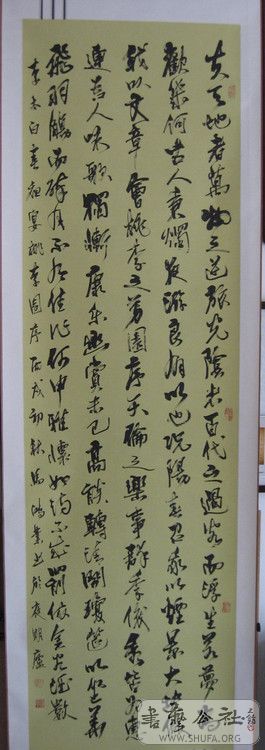 夫天地者萬物之逆旅光陰者百代之過客而浮生若夢
歡幾何古人秉燭夜遊良有以也況陽春召我以煙景大塊
我以文章會桃李之芳園序天倫之樂事群季俊秀皆為惠
連吾人詠歌獨慚康樂幽賞未已高談轉清開瓊筵以坐華
飛羽觴而醉月不有佳作何申雅懷如詩不成罰依金谷酒數
李太白春夜宴桃李園序丙戌初秋馬鴻業書於
書法公社
WWW.SHUFA.ORG